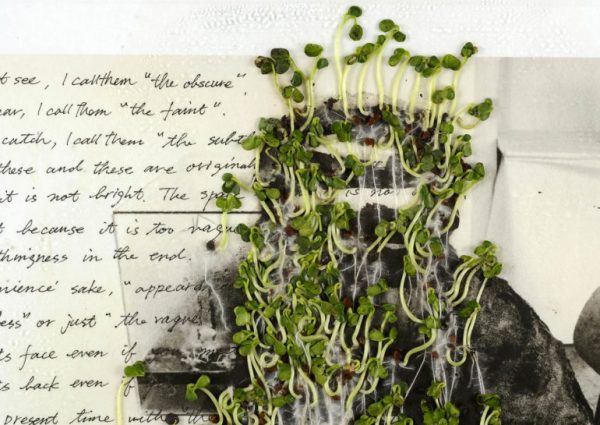 t see, I call them "the obscure"
ear, I call them "the faint".
catch, I call them "the subt
these and these are original
it is not bright. The spa is no
t because it is too vague
thingness in the end.
nience' sake, "appeard
ess" or just "the vague
ts face even if
ts back even f
present time with the